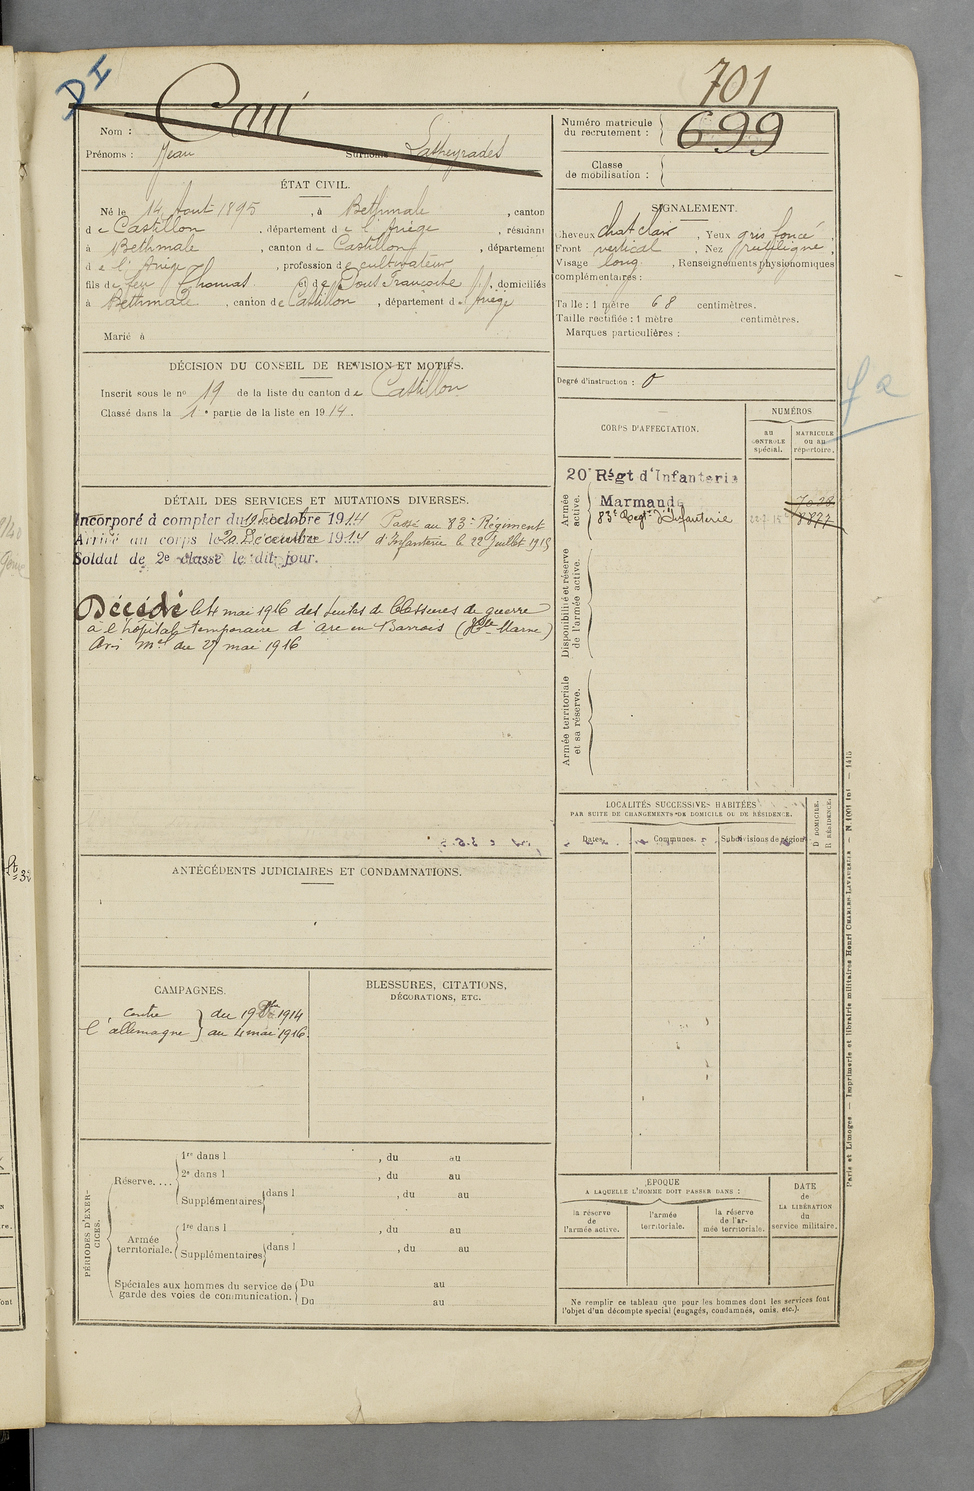 DI
701
Nom : Cau
Prénoms : Jean Surnoms :
Numéro matricule
du recrutement : 699
Classe
de mobilisation :
ÉTAT CIVIL.
Né le 14 Août 1895, à Bethmale, canton
de Castillon, département de l'Ariège, résidant
à Bethmale, canton de Castillon, département
de l'Ariège, profession de cultivateur
fils de feu Thomas et de Françoise, domiciliés
à Bethmale, canton de Castillon, département de Ariège
Marié à
SIGNALEMENT.
Cheveux chat clair, Yeux gris foncé,
Front vertical, Nez rectiligne
Visage long, Renseignements physionomiques
complémentaires :
Taille : 1 mètre 68 centimètres.
Taille rectifiée : 1 mètre centimètres.
Marques particulières :
DÉCISION DU CONSEIL DE REVISION ET MOTIFS.
Inscrit sous le no 19 de la liste du canton de Castillon
Classé dans la 1e partie de la liste en 1914.
Degré d'instruction : 0
CORPS D'AFFECTATION.
NUMÉROS
au
CONTRÔLE
spécial.
MATRICULE
ou au
répertoire.
Armée
active.
20e Régt d'Infanterie
Marmande
83e Regt d'Infanterie
Disponibilité et réserve
de l'armée active.
Armée territoriale
et sa réserve.
DÉTAIL DES SERVICES ET MUTATIONS DIVERSES.
Incorporé à compter du 19 octobre 1914 Passé au 83e Régiment
Arrivé au corps le Décembre 1914 d'Infanterie le 22 Juillet 1915
Soldat de 2e classe le dit jour.
Décédé le 4 mai 1916 des suites de blessures de guerre
à l'hôpital temporaire d'Arc en Barrois (Hte Marne)
Avis mel du 27 mai 1916
LOCALITÉS SUCCESSIVES HABITÉES
PAR SUITE DE CHANGEMENTS DE DOMICILE OU DE RÉSIDENCE.
Dates.
Communes.
Subdivisions de région
D DOMICILE.
R RÉSIDENCE.
ANTÉCÉDENTS JUDICIAIRES ET CONDAMNATIONS.
CAMPAGNES.
Contre du 19 1914
l'allemagne au 4 mai 1916.
BLESSURES, CITATIONS,
DÉCORATIONS, ETC.
PÉRIODES D'EXER-
CICES.
Réserve....
1re dans l , du au
2e dans l , du au
Supplémentaires dans l , du au
Armée
territoriale.
1re dans l , du au
Supplémentaires dans l , du au
Spéciales aux hommes du service de
garde des voies de communication.
Du au
Du au
ÉPOQUE
A LAQUELLE L'HOMME DOIT PASSER DANS :
la réserve
de
l'armée active.
l'armée
territoriale.
la réserve
de l'ar-
mée territoriale.
DATE
de
LA LIBÉRATION
du
service militaire.
Ne remplir ce tableau que pour les hommes dont les services font
l'objet d'un décompte spécial (engagés, condamnés, omis, etc.).
Paris et Limoges — Imprimerie et librairie militaires Henri CHARLES-LAVAUZELLE